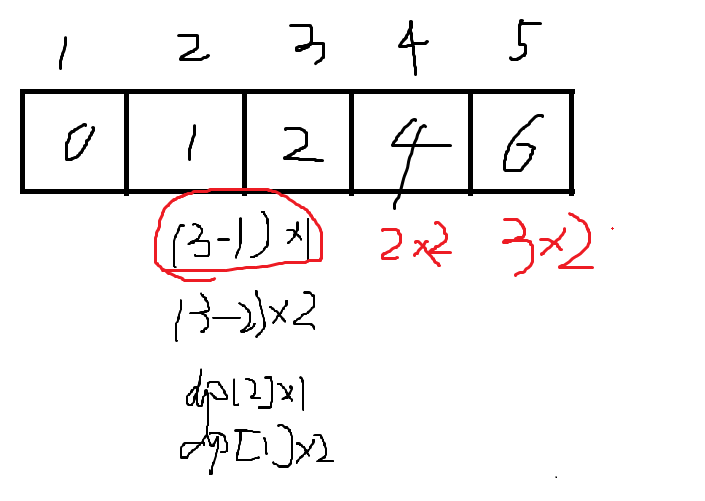 1 2 3 4 5
0 1 2 4 6
(3-1)×1 2×2 3×2
(3-2)×2
dp[2]×1
dp[1]×2